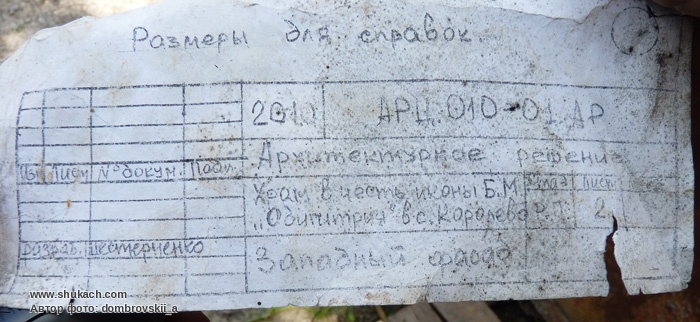 Размеры для справок.
2010 АРЦ.010-01.АР
Архитектурное решение
Изм Лист №докум. Подп.
Храм в честь иконы Б.М. Стад. Лист
„Одигитрия" в с. Королево Р. 2
Разраб.
Западный фасад
www.shukach.com
Автор фото: dombrovskii_a